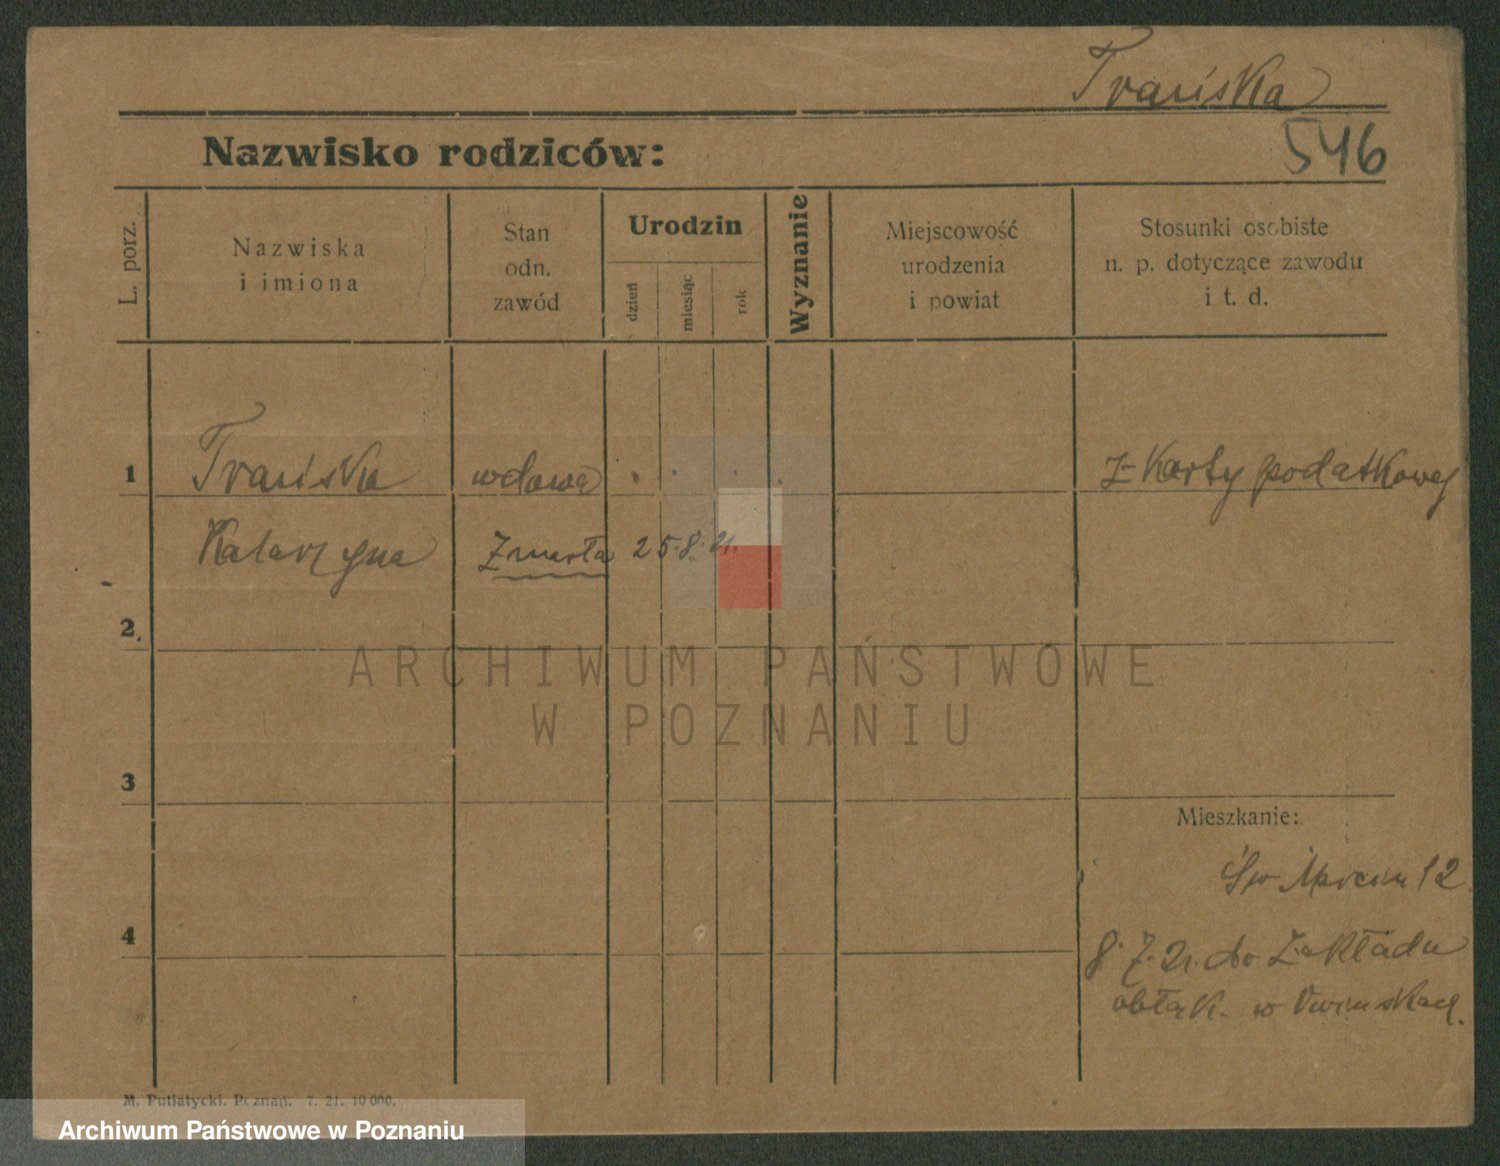 Trańska
Nazwisko rodziców:
546
L. porz.
Nazwiska
i imiona
Stan
odn.
zawód
Urodzin
dzień
miesiąc
rok
Wyznanie
Miejscowość
urodzenia
i powiat
Stosunki osobiste
n. p. dotyczące zawodu
i t. d.
1 Trańska wdowa z Karty podatkowej
Katarzyna Zmarła 25.8.21.
2.
ARCHIWUM PAŃSTWOWE
W POZNANIU
3
Mieszkanie:
Św Marcin 12
4
8.7.21. do Zakładu
obłąk. w Owinskach.
M. Putiatycki. Poznań. 7. 21. 10 000.
Archiwum Państwowe w Poznaniu